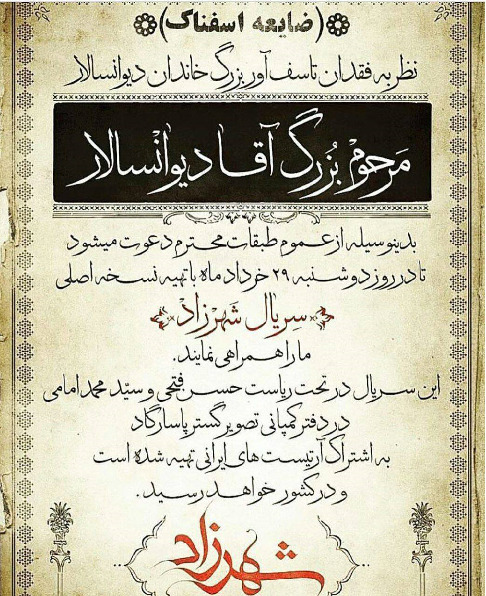 (ضایعه اسفناک)
نظر به فقدان تاسف آور بزرگ خاندان دیوانسالار
مَرحوم بُزرگ آقا دیوانسالار
بدینوسیله از عموم طبقات محترم دعوت میشود
تا در روز دوشنبه ۲۹ خرداد ماه با تهیه نسخه اصلی
سریال شَهرزاد
ما را همراهی نمایند.
این سریال در تحت ریاست حسن فتحی و سیّد محمد امامی
در دفتر کمپانی تصویر گستر پاسارگاد
به اشتراک آرتیست های ایرانی تهیه شده است
و در کشور خواهد رسید.
شهرزاد